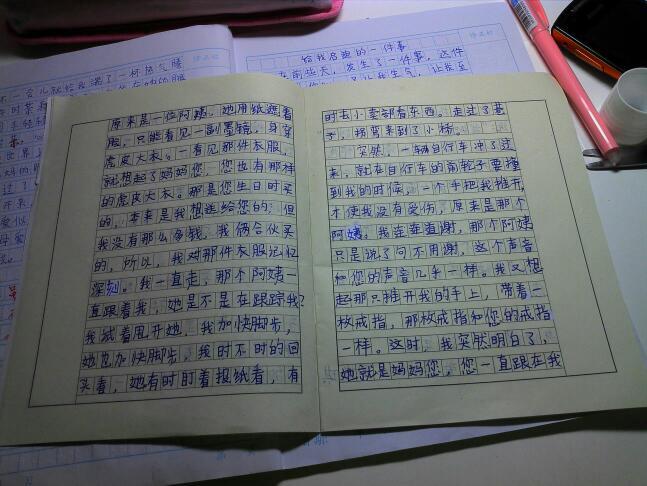 给我启迪的一件事
发生了一件事，这件
让我生气，让我至
一会儿就给我端了一杯热气腾
原来是一位阿姨，她用纸遮着
脸，只能看见一副墨镜，身穿
虎皮大衣。一看见那件衣服，
就想起了妈妈您，您也有那样
的虎皮大衣。那是您生日时买
的，本来是我想送给您的，但
我没有那么多钱，我俩合伙买
的，所以，我对那件衣服记忆
深刻。我一直走，那个阿姨一
直跟着我，她是不是在跟踪我？
我试着甩开她，我加快脚步，
她也加快脚步，我时不时的回
头看，她有时盯着报纸看，有
时去小卖部看东西。走过了巷
子，拐弯来到了小桥。
突然，一辆自行车冲了过
来，就在自行车的前轮子要撞
到我的时候，一个手把我推开，
才使我没有受伤，原来是那个
阿姨，我连连道谢，那个阿姨
只是说了句不用谢，这个声音
和您的声音几乎一样。我又想
起那只推开我的手上，带着一
枚戒指，那枚戒指和您的戒指
一样。这时，我突然明白了，
她就是妈妈您。您一直跟在我